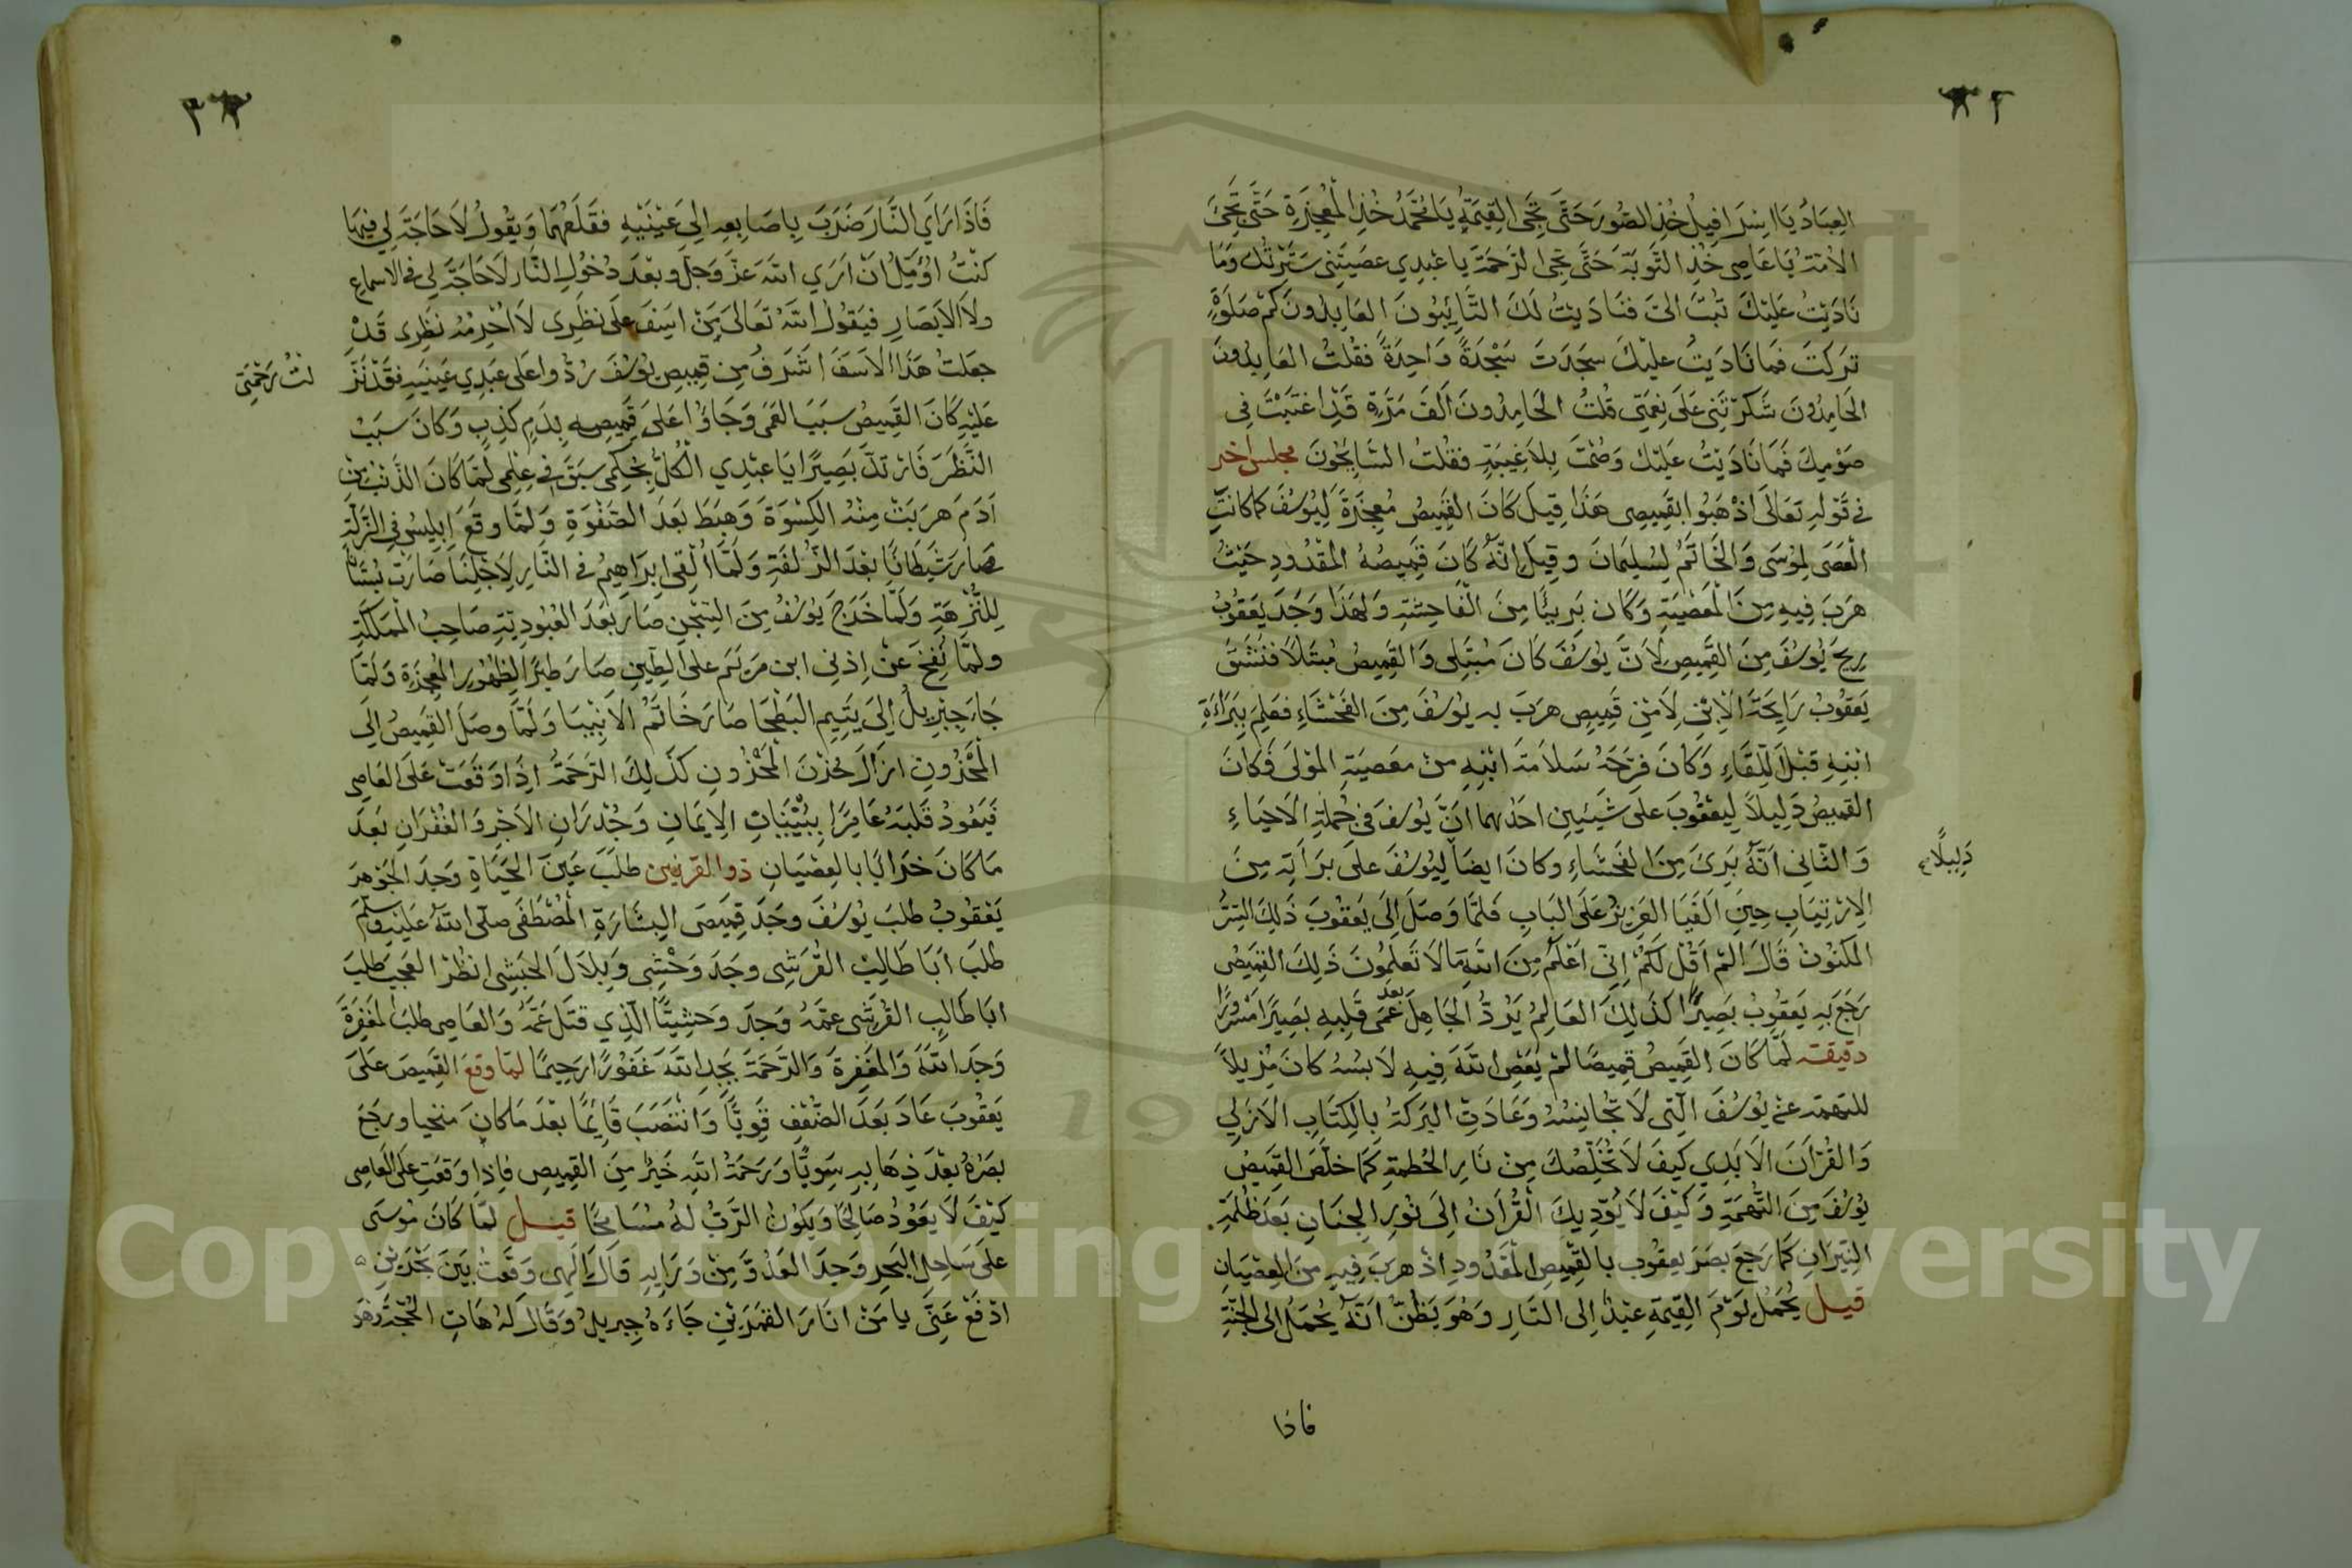 ٣٢
العِبَادَ يَا اسِرَافِيلُ خُذِ الصُّورَ حَتَّى تَجَى القِيمَةِ يَا مُحَمَّدُ خُذِ الْمُعِجَزَةِ حَتَّى تَجَى
الأمّة يَا عَاصِى خُذِ التَّوبَةَ حَتَّى تجى الرَحمَةَ يا عَبدِي عصَيتَنِى سَتَرْتُكَ وَمَا
نَادَيْتُ عَلَيْكَ تُبْتَ الىَّ فنَادَيتُ لَكَ التَّائِبُونَ العَابِدُونَ كَم صَلَوةٍ
ترَكتَ فمَا نَادَيتُ عليْكَ سجَدَتَ سَجْدَةً وَاحِدَةً فقُلتُ العَابِدُونَ
الحَامِدُونَ شَكَرْتَنِى عَلَى نِعْمَتِى قُلتُ الحَامِدُونَ اَلفَ مَرَّةٍ قَدِ اغتَبْتَ فى
صَوْمِكَ فَمَا نَادَيْتُ عَلَيْكَ وَصُمْتَ بِلاَ غِيبَةٍ فقُلتُ السَّايِحُونَ مجلس اخر
فى قَولِهِ تَعَالَى اذْهَبُوا بقَمِيصِى هَذَا قِيلَ كَانَ القَمِيصُ مُعِجَزَةً لِيُوسُفَ كمَا كانَتِ
الْعَصَى لِمُوسَى وَالخَاتَمُ لِسُلِيمَانَ وقِيلَ انَّهُ كَانَ قَمِيصُهُ المَقْدُودِ حَيْثُ
هرَبَ فِيهِ مِنَ الْمَعْصِيَةِ وَكَان بَرِيئًا مِنَ الفَاحِشَةِ وَلهَذَا وَجَدَ يَعقُوبُ
رِيحَ يُوسُفَ مِنَ القَمِيصِ لِأَنَّ يوسُفَ كَانَ مُبْتَلِى وَالقَمِيصُ مُبْتَلاً فنَشَقَ
يَعقُوبُ رَايِحَةَ الاِبْنِ لِاَمْنِ قَمِيصٍ هرَبَ به يوسُفَ مِنَ الفَحْشَاءِ فعَلِمَ بِبَرَاءَةِ
ابْنِهِ قبْلَ اللِّقَاءِ وَكَانَ فرَحَهُ سَلاَمَةَ ابْنِهِ منْ معَصِيَةِ المَوْلَى فَكانَ
القمِيصُ دَلِيلاً لِيعْقُوبَ علَى شَيئَينِ احَدُهما انَّ يُوسُفَ فى جُملَةِ الاَحيَاءِ
وَالثَّانِى اَنَّهُ بَرِئَ مِنَ الفَحشَاءِ وكانَ ايضًا لِيُوسُفَ علَى برَاَتِه مِنَ
دَلِيلًا
الاِرْتِيَابِ حِينَ اَلفَيَا العَزِيزُ عَلَى البَابِ فلَمَّا وَصَلَ اِلَى يَعقُوبَ ذَلِكَ السِّرُّ
المَكنُونُ قَالَ المْ اَقُل لَكُمْ اِنِّى اَعْلَمُ مِنَ اللَّهِ مَا لاَ تَعلَمُونَ ذَلِكَ القَمِيصُ
رَجَعَ بَهِ يَعقُوبُ بَصِيرًا كذَلِكَ العَالِمُ يَرُدُّ الجَاهِلَ بعد عَمَى قَلِبِهِ بَصِيرًا مَسْرُورًا
دقيقة لَمَّا كَانَ القَمِيصُ قمِيصًا لمْ يَعْصِ اللَّهَ فِيهِ لاَبسُهُ كانَ مُزِيلاً
للتهمَة عنْ يُوسُفَ الَّتِى لاَ تجُانِسُهُ وَعَادَتِ البَرَكَةُ بالكِتَابِ الاَزَلِي
وَالقُرْآنَ الاَبَدِي كيفَ لاَ تُخَلِّصُكَ مِنْ نَارِ الحُطَمةِ كَمَا خلَّصَ القَمِيصُ
يُوسُفَ مِنَ التُّهمَةِ وَكَيْفَ لاَ يُؤَدِيكَ الْقُرآنُ اِلَى نُورِ الجِنَانِ بَعدَ ظُلمَةِ
النِيَرانِ كمَا رَجعَ بصَرَ يعقُوب بالقَمِيصِ المَقدُودِ اذْ هرَبَ فِيهِ منَ العِصْيَانِ
قيل يُحمَلُ يَوْمَ القِيمَةِ عبْدٌ اِلَى النَّارِ وَهُوَ يَظُنُّ اَنَّهُ يُحمَلُ اِلى الجنَّةِ
فاذا
٣٣
فَاذَا رَاَي النَّارَ ضَرَبَ بِاصَابعِهِ اِلَى عَيْنَيْهِ فقَلَعُهمَا وَيَقُولُ لاَحَاجَةَ لِي فِيهَا
كنْتُ اُؤَمِّلُ انْ اَرَي اللَّهَ عزَّ وَجلَّ وبعْدَ دُخُولِ النَّارِ لاَ حَاجَةَ لِى فى الاسماع
ولاَ الاَبصَارِ فيَقُولُ اللَّهُ تَعَالَى مَنْ اسِفَ علَى نظَرِى لاَ اُحْرِمْهُ نظَرِى قَدْ
جعَلتُ هَذَا الاَسَفَ اَشرَفُ مِن قمِيصِ يُوسُفَ رُدُّوا علَى عَبدِي عَينَيهِ فقَدْ نَزَّ
لتْ رَحْمَتِى
عَليهِ كَانَ القَمِيصُ سبَبَ العَمَى وَجَاؤُا علَى قَمِيصِهِ بِدَمٍ كذِبٍ وَكانَ سبَبُ
النَّظَرَ فَارتدَّ بَصِيرًا يَا عبْدِي الْكُلُّ بحُكِمى سبَقَ فى عِلمِى لَمّا كَانَ الذَّنبُ مِنْ
اَدَمَ هربَتْ مِنْهُ الكِسْوَةَ وَهبَطَ بَعَدَ الصَّفْوَةِ وَلَمَّا وقَعَ اِبلِيسُ فى الزَّلَّةِ
صَارَ شَيطَانًا بعْدَ الزُّلفَةِ وَلَمَّا اُلْقِى اِبرَاهِيمُ فى النَّارِ لِاَجْلِنَا صَارَتْ بُستَاناً
لِلنُّزْهَةِ وَلَمَّا خَرَجَ يُوسُفُ مِنَ السِّجْنِ صَارَ بعَدَ العُبُودِيَةِ صَاحِبُ المَملَكَةِ
ولمَّا نُفِخَ عَنْ اِذنِى ابن مَريَم علَى الطِينِ صَارَ طيرًا لِظُهُورِ المُعِجَزَةِ وَلَمَّا
جَاءَ جِبْرِيلُ اِلىَ يَتِيمِ البَطْحَا صَارَ خَاتَمُ الاَنبِيَا وَلَمَّا وصَلَ القَمِيصُ اِلَي
الْمَحْزُونِ ازَالَ حُزْنَ الْمَحْزُونِ كذَلِكَ الرَحمَةُ اِذَا وَقَعَتْ عَلَى العَاصِى
فَيَعُودُ قَلبَهُ عَامِرًا بِبُنْيَانِ الاِيمَانِ وَجُدْرَانِ الاَجْرِ وَالغُفْرَانِ بَعدَ
مَا كَانَ خرَابًا بالعِصْيَانِ ذوالقرنين طلَبَ عَينَ الحَيَاةِ وَجدَ الجَوْهرَ
يَعْقُوبُ طلَبَ يُوسُفَ وجَدَ قمِيصَ البِشَارَةِ الْمُصْطَفَى صلَّى اللَّهُ عَلَيهِ وسلَّم
طلَبَ ابَا طَالِبْ القُرَشِى وجَدَ وَحْشِى وَبِلاَلَ الحَبَشِى انظُرْ العَجَبَ طلَبَ
ابَا طَالبٍ القُرَشِى عمَّهُ وَجدَ وَحشِيَّا الَّذِي قتَلَ عَمَّهُ وَالعَاصِى طلبَ المَغفِرَةَ
وَجدَ اللَّهَ وَالمَغفِرةَ وَالرَّحَمَةَ يَجِدِ اللَّهَ غَفُورًا رَحِيمًا لمَّا وقعَ القَمِيصَ عَلَى
يَعقُوبَ عَادَ بَعدَ الضُعْفِ قَوِيًّا وَانْتَصَبَ قَايِمًا بعْدَ مَا كانَ منحنيا ورَجَعَ
بصَرُهُ بعْدَ ذِهَابِهِ سَوِيًّا وَرَحمَةُ اللَّهِ خَيرٌ مِنَ القمِيصِ فاِذا وَقعَتِ علَى العَاصِى
كيْفَ لاَ يعَوُدُ صَالحًا وَيكُونُ الرَّبُّ لهُ مُسَامِحًا قيل لمَّا كَانَ مُوسَى
علَى سَاحِلِ البَحرِ وَجدَ العَدُوَّ مِنْ وَرَايِهِ قَالَ اِلَهِى وَقعْتُ بَينَ بَحْرَيْنِ
ادْفَعْ عَنِّى يا مَنْ انَارَ القمَرَيْنِ جَاءَهُ جِبرِيلُ وَقَالَ لَهُ هَاتِ الحُجَّةَ وَهوَ